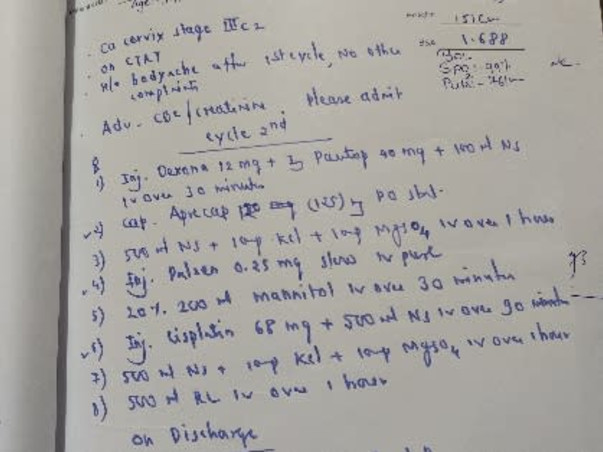 151 Cm
1.688
Ca cervix stage IIIC2
SPO2 - 99%
on CTRT
H/o bodyache after 1st cycle, No other
complaints
Adv - CBC / creatinine Please admit
cycle 2nd
1) Inj. Dexona 12 mg + Inj Pantop 40 mg + 100 ml NS
IV over 30 minutes
2) Cap. Aprecap (125) mg PO stat.
3) 500 ml NS + 1amp Kcl + 1amp MgSO4 IV over 1 hour
4) Inj. Palzen 0.25 mg slow IV push
5) 20% 200 ml mannitol IV over 30 minutes
6) Inj. Cisplatin 68 mg + 500 ml NS IV over 90 minutes
7) 500 ml NS + 1amp Kcl + 1amp MgSO4 IV over 1 hour
8) 500 ml RL IV over 1 hour
on Discharge